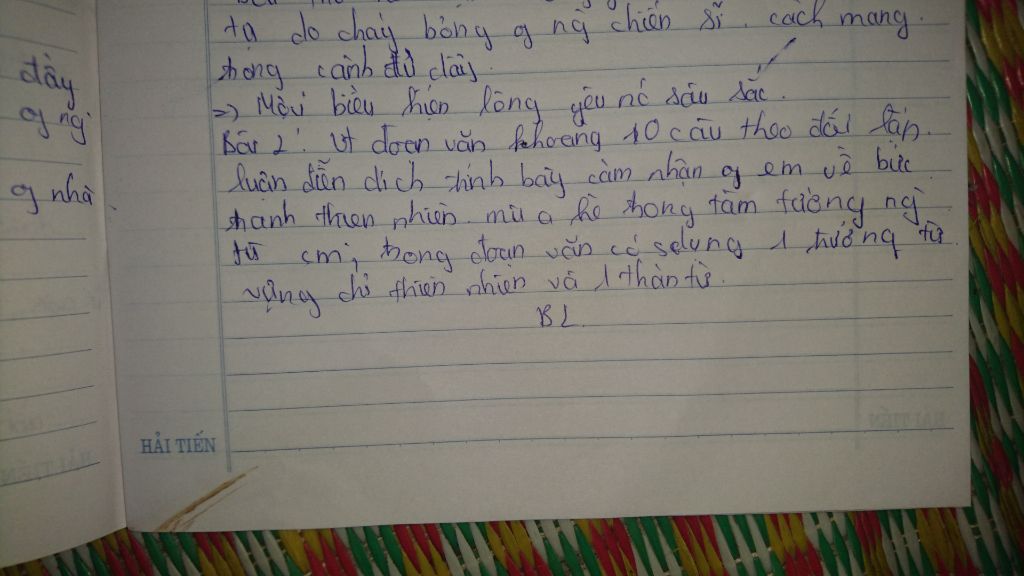 tự do cháy bỏng of ng chiến sĩ cách mạng
trong cảnh tù đày
=> Mọi biểu hiện lòng yêu nc sâu sắc.
Bài 2: Vt đoạn văn khoảng 10 câu theo lối lập
luận diễn dịch trình bày cảm nhận of em về bức
tranh thiên nhiên mùa hè trong tâm tưởng ng
tù cm; trong đoạn văn có sdung 1 trường từ
vựng chỉ thiên nhiên và 1 thán từ.
BL
đầy
of ng
of nhà
HẢI TIẾN